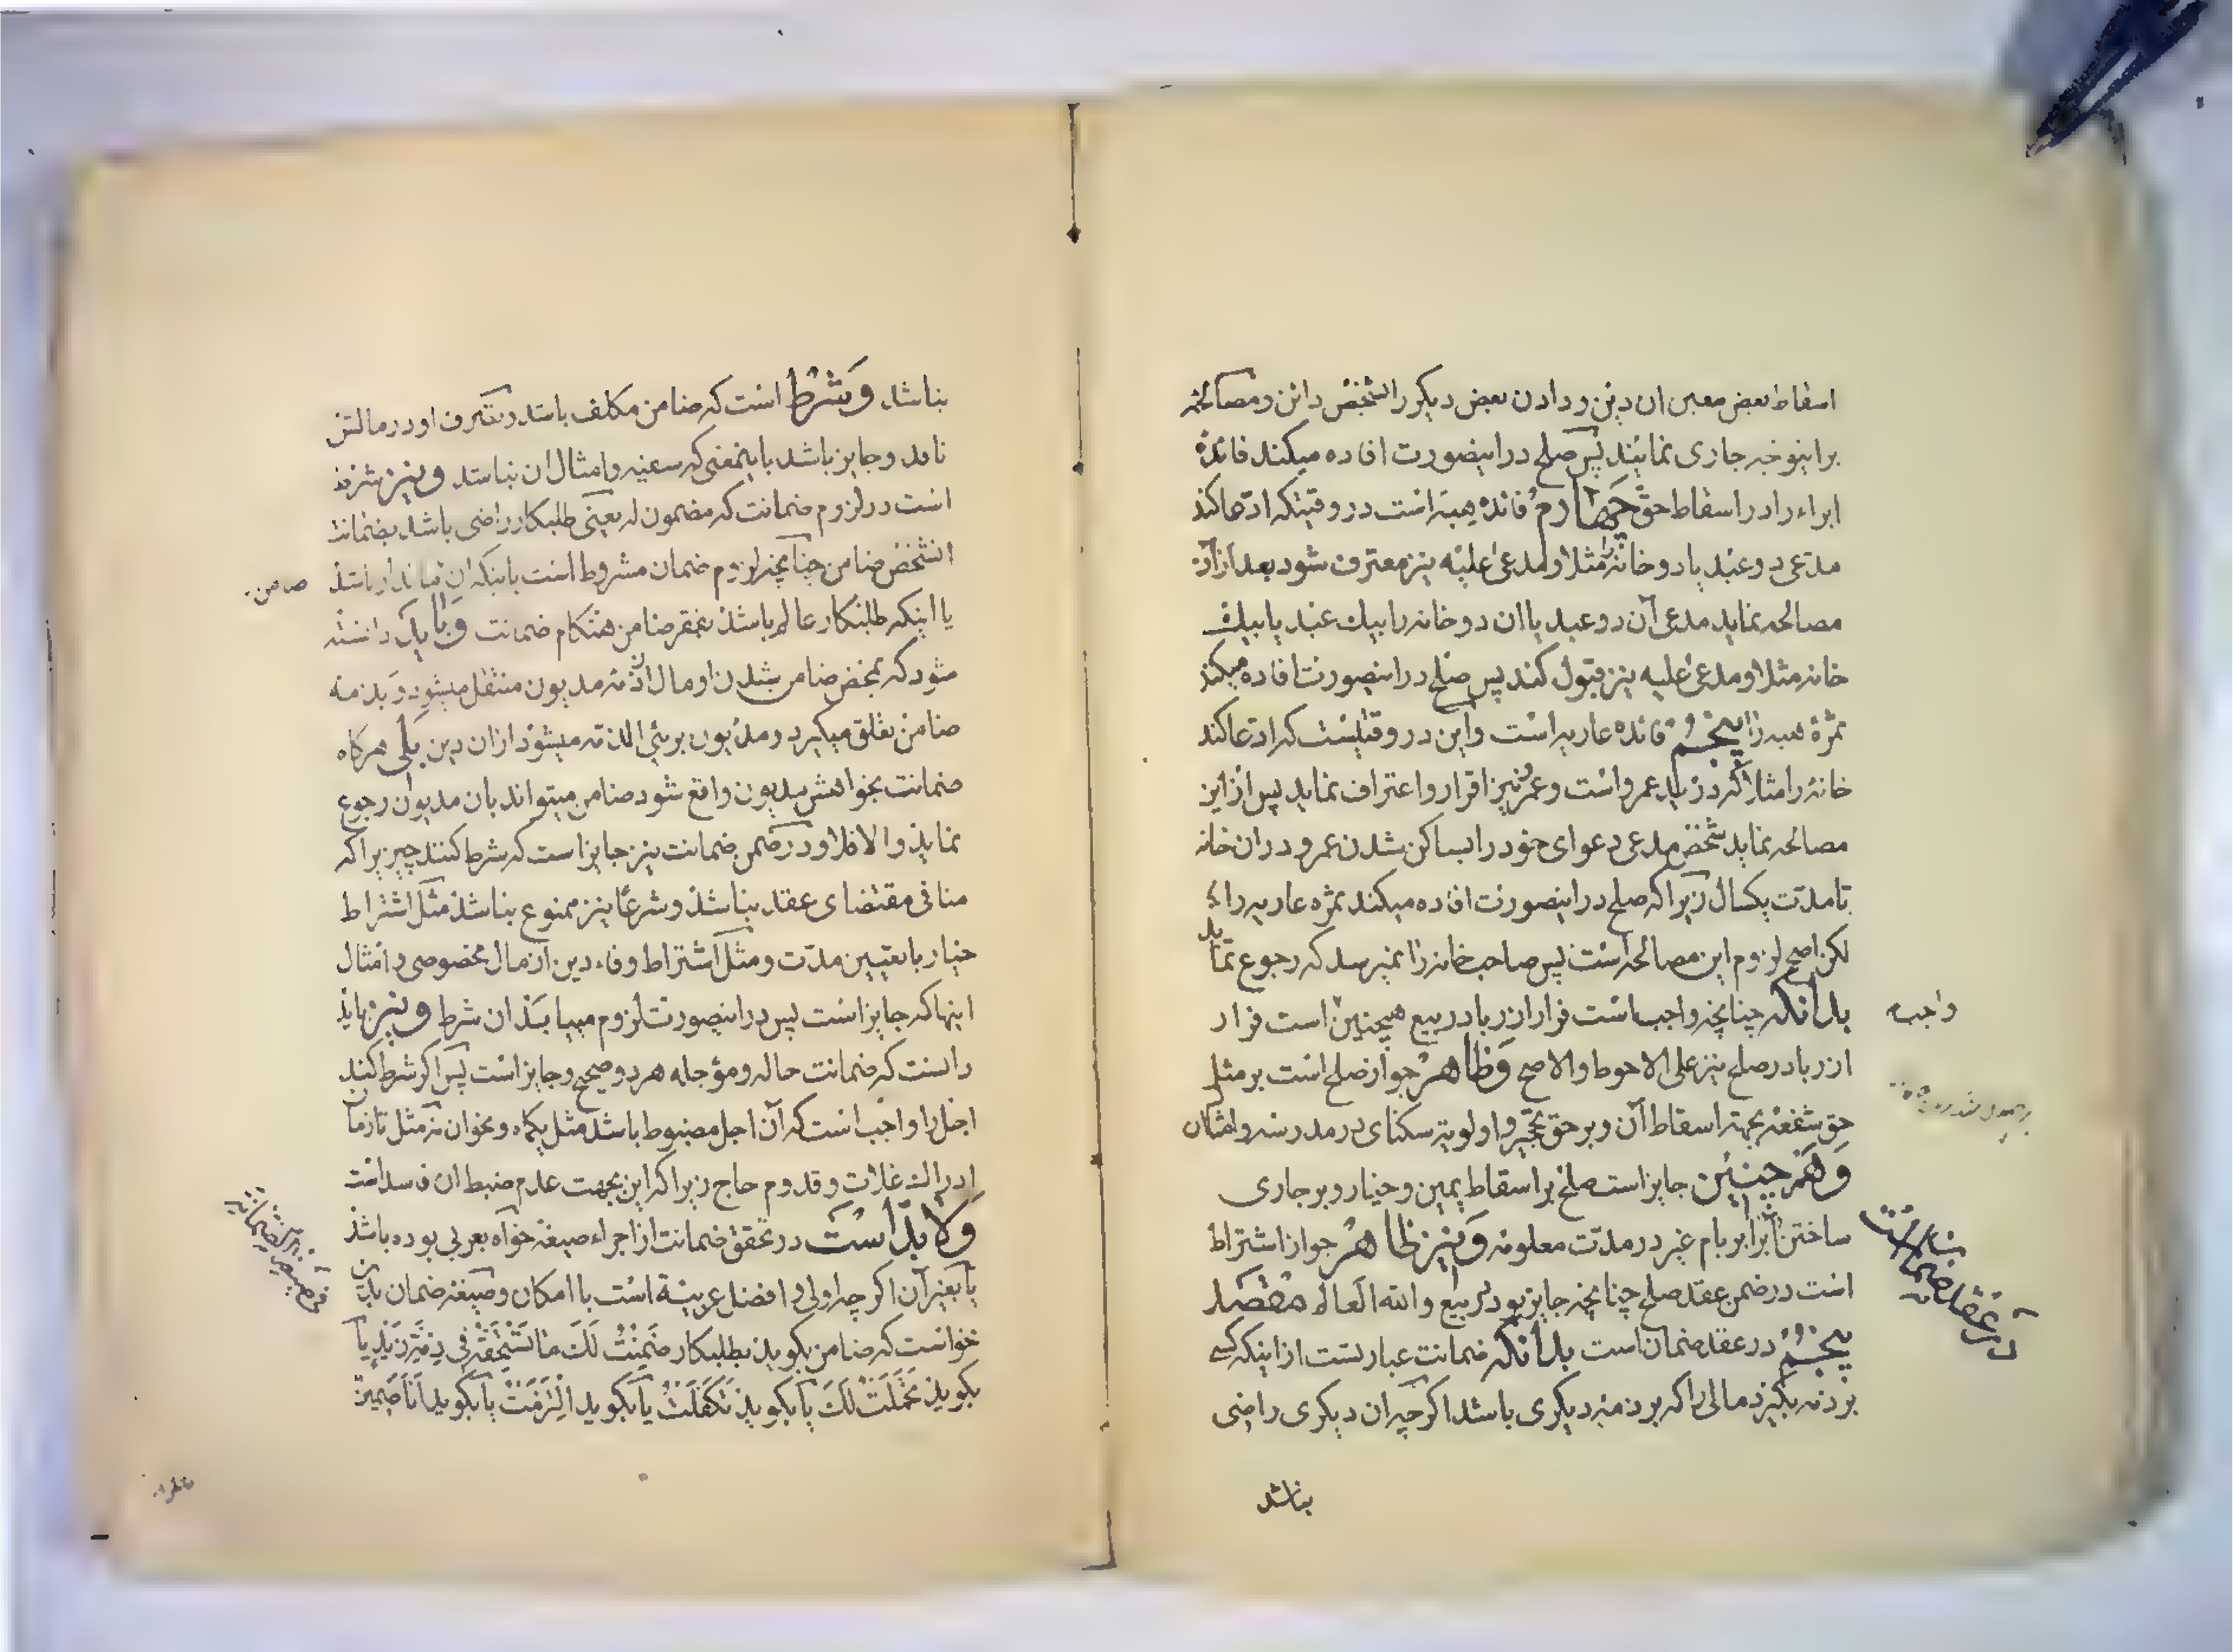 اسقاط بعض معین ان دین و دادن بعض دیکر را بشخص دائن و مصالحه
براینوجه جاری نمایند پس صلح در اینصورت افاده میکند فائدهٔ
ابراء را در اسقاط حق چهارم فائده هبه است در وقتیکه ادعا کند
مدعی دو عبد یا دو خانه را مثلا و مدعی علیه نیز معترف شود بعد از آن
مصالحه نماید مدعی آن دو عبد یا ان دو خانه را بیک عبد یا بیک
خانه مثلا و مدعی علیه نیز قبول کند پس صلح در اینصورت افاده میکند
ثمرهٔ هبه را پنجم فائده عاریه است و این در وقتیست که ادعا کند
خانه را مثلا که در ید عمرو است و عمرو نیز اقرار و اعتراف نماید پس از این
مصالحه نماید شخص مدعی دعوای خود را بساکن شدن عمرو در ان خانه
تا مدت یکسال زیرا که صلح در اینصورت افاده میکند ثمره عاریه را
لکن اصح لزوم این مصالحه است پس صاحب خانه را نمیرسد که رجوع نماید
بدانکه چنانچه واجب است فرار از ربا در بیع همچنین است فرار
واجب
از ربا در صلح نیز علی الاحوط والاصح وظاهر جواز صلح است بر مثل
حق شفعه بجهة اسقاط آن و بر حق تحجیر و اولویة سکنای در مدرسه و امثال ان
وهم چنین جایز است صلح بر اسقاط یمین و خیار و بر جاری
ساختن آب را بر بام غیر در مدت معلومه ونیز ظاهر جواز اشتراط
است در ضمن عقد صلح چنانچه جایز بود در بیع والله العالم مقصد
پنجم در عقد ضمان است بدانکه ضمانت عبارتست از اینکه کسی
در عقد ضمانت
بر ذمه بگیرد مالی را که بر ذمه دیکری باشد اکر چه ان دیکری راضی
نباشد
نباشد وشرط است که ضامن مکلف باشد و تصرف او در مالش
نافذ و جایز باشد باینمعنی که سفیه و امثال ان نباشد ونیز شرط
است در لزوم ضمانت که مضمون له یعنی طلبکار راضی باشد بضمانت
انشخص ضامن چنانچه لزوم ضمان مشروط است باینکه ان مالدار باشد
ضامن
یا اینکه طلبکار عالم باشد بفقر ضامن هنکام ضمانت وباید دانسته
شود که بمحض ضامن شدن او مال از ذمه مدیون منتقل میشود و بذمه
ضامن تعلق میکیرد و مدیون برئی الذمه میشود از ان دین بلی هرکاه
ضمانت بخواهش مدیون واقع شود ضامن میتواند بان مدیون رجوع
نماید والا فلا و در ضمن ضمانت نیز جایز است که شرط کنند چیزیرا که
منافی مقتضای عقد نباشد و شرعًا نیز ممنوع نباشد مثل اشتراط
خیار با تعیین مدت و مثل اشتراط وفاء دین از مال مخصوصی و امثال
اینها که جایز است پس در اینصورت لزوم میابد ان شرط ونیز باید
دانست که ضمانت حاله و مؤجله هر دو صحیح و جایز است پس اکر شرط کنند
اجل را واجب است که آن اجل مضبوط باشد مثل یکماه و نحو ان نه مثل تا زمان
ادراک غلات و قدوم حاج زیرا که این بجهت عدم ضبط ان فاسد است
ولابد است در تحقق ضمانت از اجراء صیغه خواه بعربی بوده باشد
یا بغیر آن اکر چه اولی و افضل عربیة است با امکان و صیغه ضمان باین
خوانست که ضامن بکوید بطلبکار ضَمِنْتُ لَكَ مَا تَسْتَحِقُّهُ فی ذِمَّةِ زَیْدٍ یا
بکوید تَحَمَّلْتُ لَكَ یا بکوید تَکَفَّلْتُ یا بکوید اِلْتَزَمْتُ یا بکوید اَنَا ضَمِین